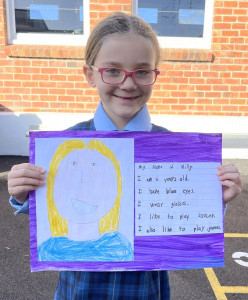 my name is
I am 6 years old.
I have blue eyes.
I wear glasses.
I like to play
I also like to play games.